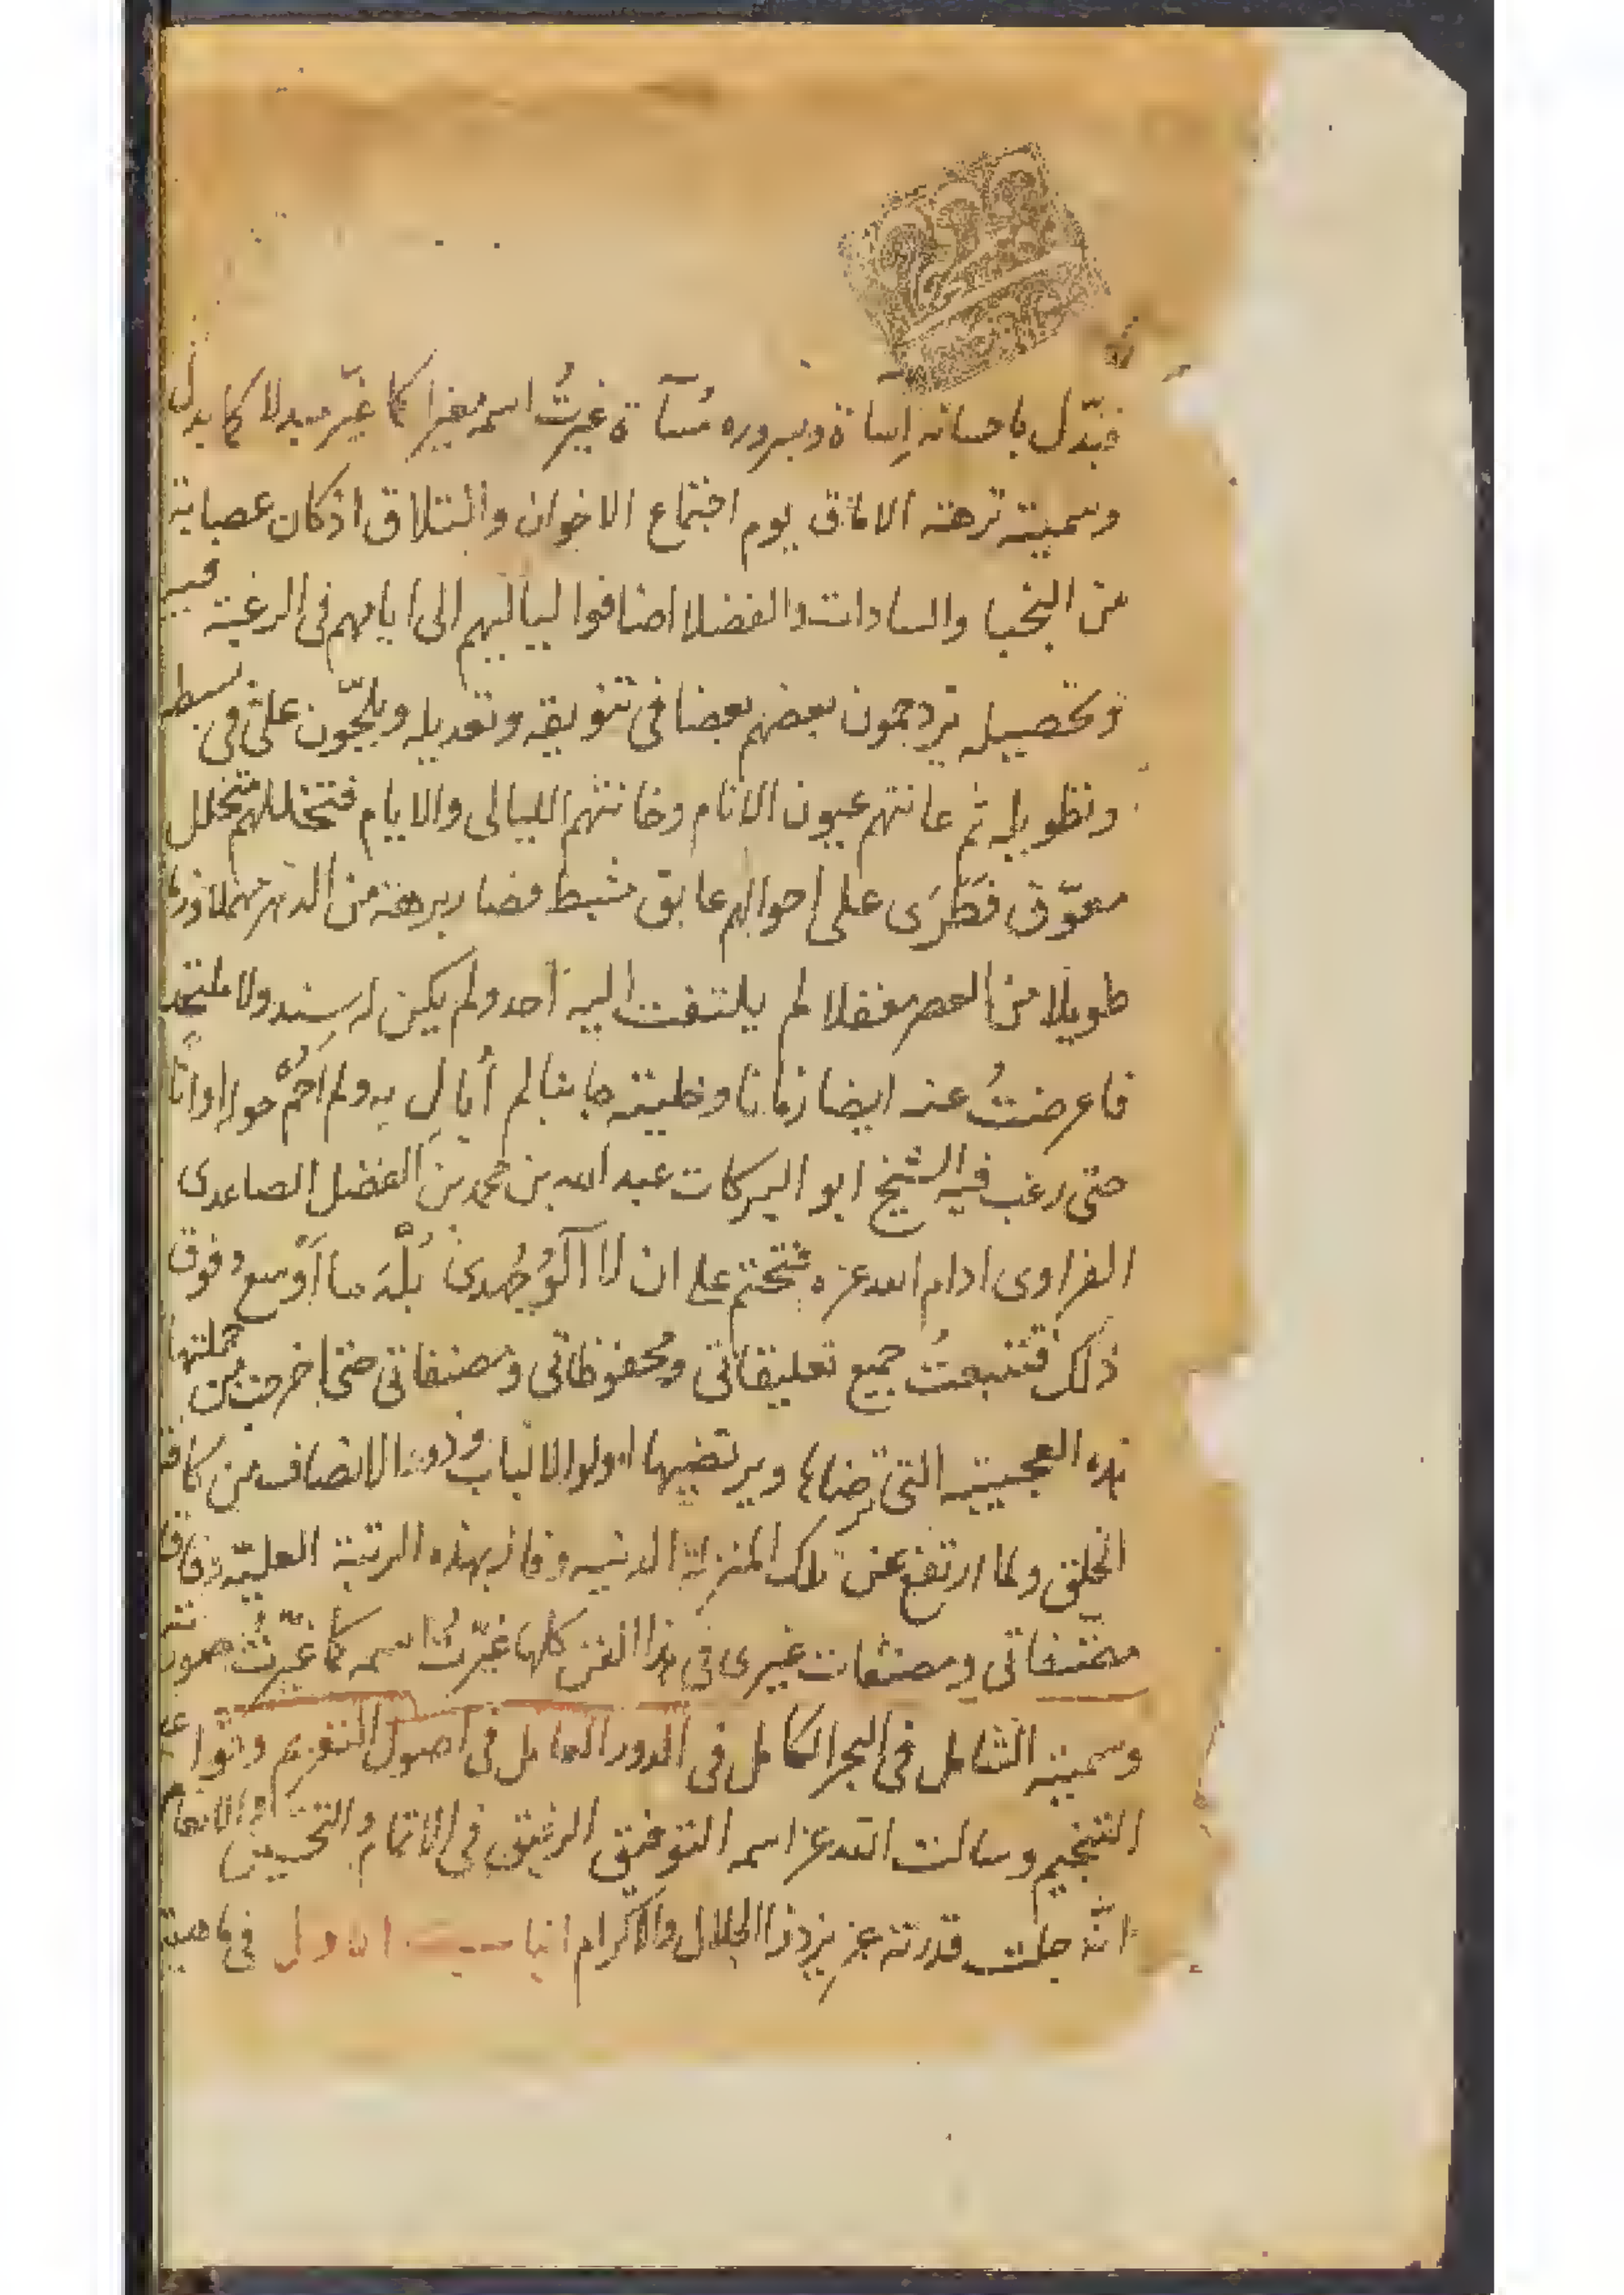 فبدّل باحسانه إساة وبسروره مُسآة غيرتُ اسمه مغيرا كما غيّر مبدلا كما بدل
وسميته نزهة الافاق يوم اجتماع الاخوان والتلاق اذ كان عصابة
من النجبا والسادات والفضلا اضافوا لياليهم الى ايامهم فى الرغبة فيه
وتحصيله يزدحمون بعضهم بعضا فى تنويقه وتعديله ويلحّون علىّ فى بسطه
وتطويله ثم عانتهم عيون الانام وخانتهم الليالى والايام فتخللهم متخلل
معوّق فطَرَى على احوالهم عايق مثبط فصار برهة من الدهر مهملا
طويلا من العصر مغفلا لم يلتفت اليه احد ولم يكن له سند ولا ملتحد
فاعرضتُ عنه ايضا زمانا وخليته جانبا لم أبالِ به ولم احُم حوله اوانًا
حتى رغب فيه الشيخ ابو البركات عبد الله بن محمد بن الفضل الصاعدى
الفراوى ادام الله عزه فتحتم على ان لا آلوُ جُهدى بَلْهَ ما اَوْسع وفوق
ذلك فتتبعتُ جميع تعليقاتى ومحفوظاتى ومصنفاتى حتى اخرجت من جملتها
هذه العجيبة التى ترضاها ويرتضيها اولوا الالباب وذووا الانصاف من كافة
الخلق ولما ارتفع عن تلك المنزلة الدنيه وفاز بهذه الرتبة العليّه وفاق
مصنفاتى ومصنفات غيرى فى هذا الفن كلها غيّرتُ اسمه كما غيّرتُ صورته
وسميته الشامل فى البحر الكامل فى الدور العامل فى اصول التعزيم وقواعد
التنجيم وسالت الله عز اسمه التوفيق الرفيق فى الاتمام والتحسين
انّه جلت قدرته عزيز ذا الجلال والاكرام الباب الاول فى ماهية